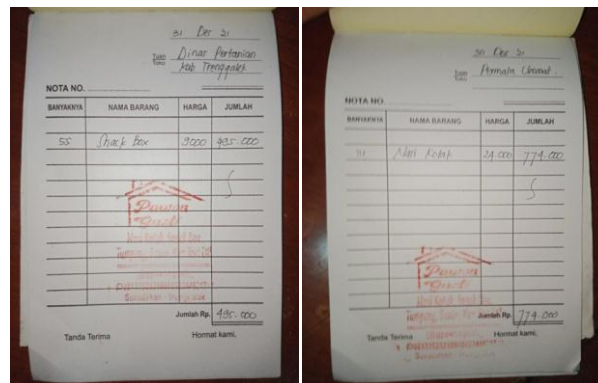 31 Des 21
Tuan
Toko
Dinas Pertanian
Kab Trenggalek
NOTA NO.
BANYAKNYA NAMA BARANG HARGA JUMLAH
55 Snack Box 9000 495.000
Pawon
Gusti
Jumlah Rp. 495.000
Tanda Terima Hormat kami,
30 Des 21
Tuan
Toko
Permata
NOTA NO.
BANYAKNYA NAMA BARANG HARGA JUMLAH
Nasi Kotak 24.000 774.000
Pawon
Gusti
Jumlah Rp. 774.000
Tanda Terima Hormat kami,